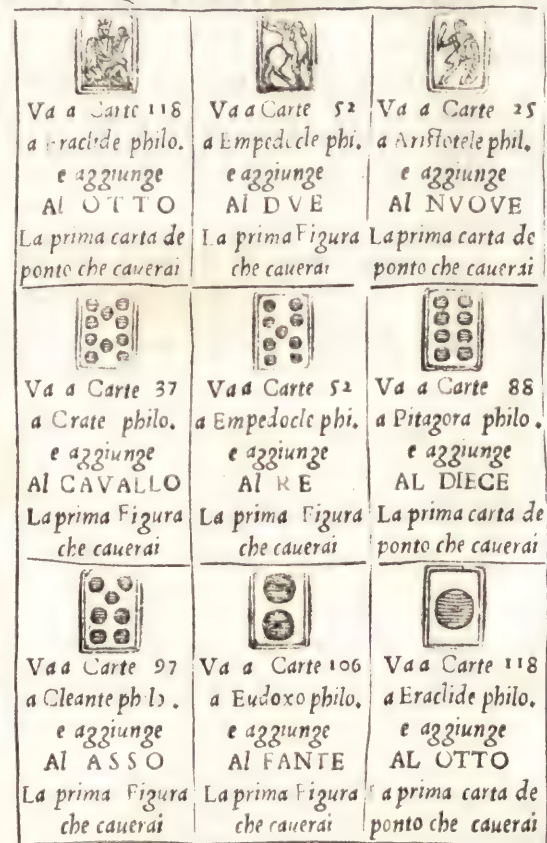 Va a Carte 118
a Eraclide philo.
e aggiunge
Al OTTO
La prima carta de
ponto che cauerai
Va a Carte 52
a Empedocle phi.
e aggiunge
Al DVE
La prima Figura
che cauerai
Va a Carte 25
a Aristotele phil.
e aggiunge
Al NVOVE
La prima carta de
ponto che cauerai
Va a Carte 37
a Crate philo.
e aggiunge
Al CAVALLO
La prima Figura
che cauerai
Va a Carte 52
a Empedocle phi.
e aggiunge
Al RE
La prima Figura
che cauerai
Va a Carte 88
a Pitagora philo.
e aggiunge
AL DIECE
La prima carta de
ponto che cauerai
Va a Carte 97
a Cleante philo.
e aggiunge
Al ASSO
La prima Figura
che cauerai
Va a Carte 106
a Eudoxo philo.
e aggiunge
Al FANTE
La prima Figura
che cauerai
Va a Carte 118
a Eraclide philo.
e aggiunge
AL OTTO
La prima carta de
ponto che cauerai